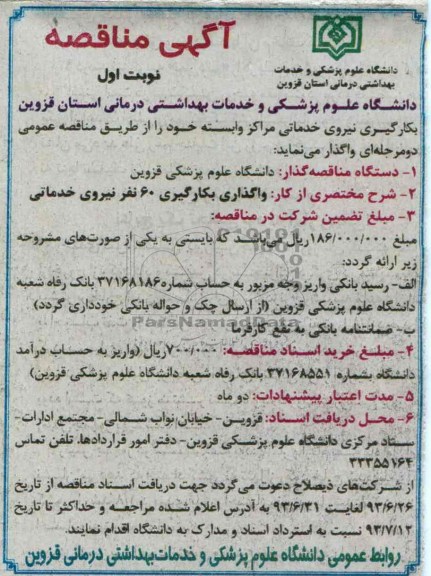 آگهی مناقصه
نوبت اول
دانشگاه علوم پزشکی و خدمات
بهداشتی درمانی استان قزوین
دانشگاه علوم پزشکی و خدمات بهداشتی درمانی استان قزوین
بکارگیری نیروی خدماتی مراکز وابسته خود را از طریق مناقصه عمومی
دومرحله‌ای واگذار می‌نماید:
۱- دستگاه مناقصه‌گذار: دانشگاه علوم پزشکی قزوین
۲- شرح مختصری از کار: واگذاری بکارگیری ۶۰ نفر نیروی خدماتی
۳- مبلغ تضمین شرکت در مناقصه:
مبلغ ۱۸۶/۰۰۰/۰۰۰ ریال می‌باشد که بایستی به یکی از صورت‌های مشروحه
زیر ارائه گردد:
الف- رسید بانکی واریز وجه مزبور به حساب شماره ۳۷۱۶۸۱۸۶ بانک رفاه شعبه
دانشگاه علوم پزشکی قزوین (از ارسال چک و حواله بانکی خودداری گردد)
ب- ضمانتنامه بانکی به نفع کارفرما
ParsNamadData
۴- مبلغ خرید اسناد مناقصه: ۷۰۰/۰۰۰ ریال (واریز به حساب درآمد
دانشگاه بشماره ۳۷۱۶۸۵۵۱ بانک رفاه شعبه دانشگاه علوم پزشکی قزوین)
۵- مدت اعتبار پیشنهادات: دو ماه
۶- محل دریافت اسناد: قزوین- خیابان نواب شمالی- مجتمع ادارات-
ستاد مرکزی دانشگاه علوم پزشکی قزوین- دفتر امور قراردادها. تلفن تماس
۳۳۳۵۵۱۶۴
از شرکت‌های ذیصلاح دعوت می‌گردد جهت دریافت اسناد مناقصه از تاریخ
۹۳/۶/۲۶ لغایت ۹۳/۶/۳۱ به آدرس اعلام شده مراجعه و حداکثر تا تاریخ
۹۳/۷/۱۲ نسبت به استرداد اسناد و مدارک به دانشگاه اقدام نمایند.
روابط عمومی دانشگاه علوم پزشکی و خدمات بهداشتی درمانی قزوین